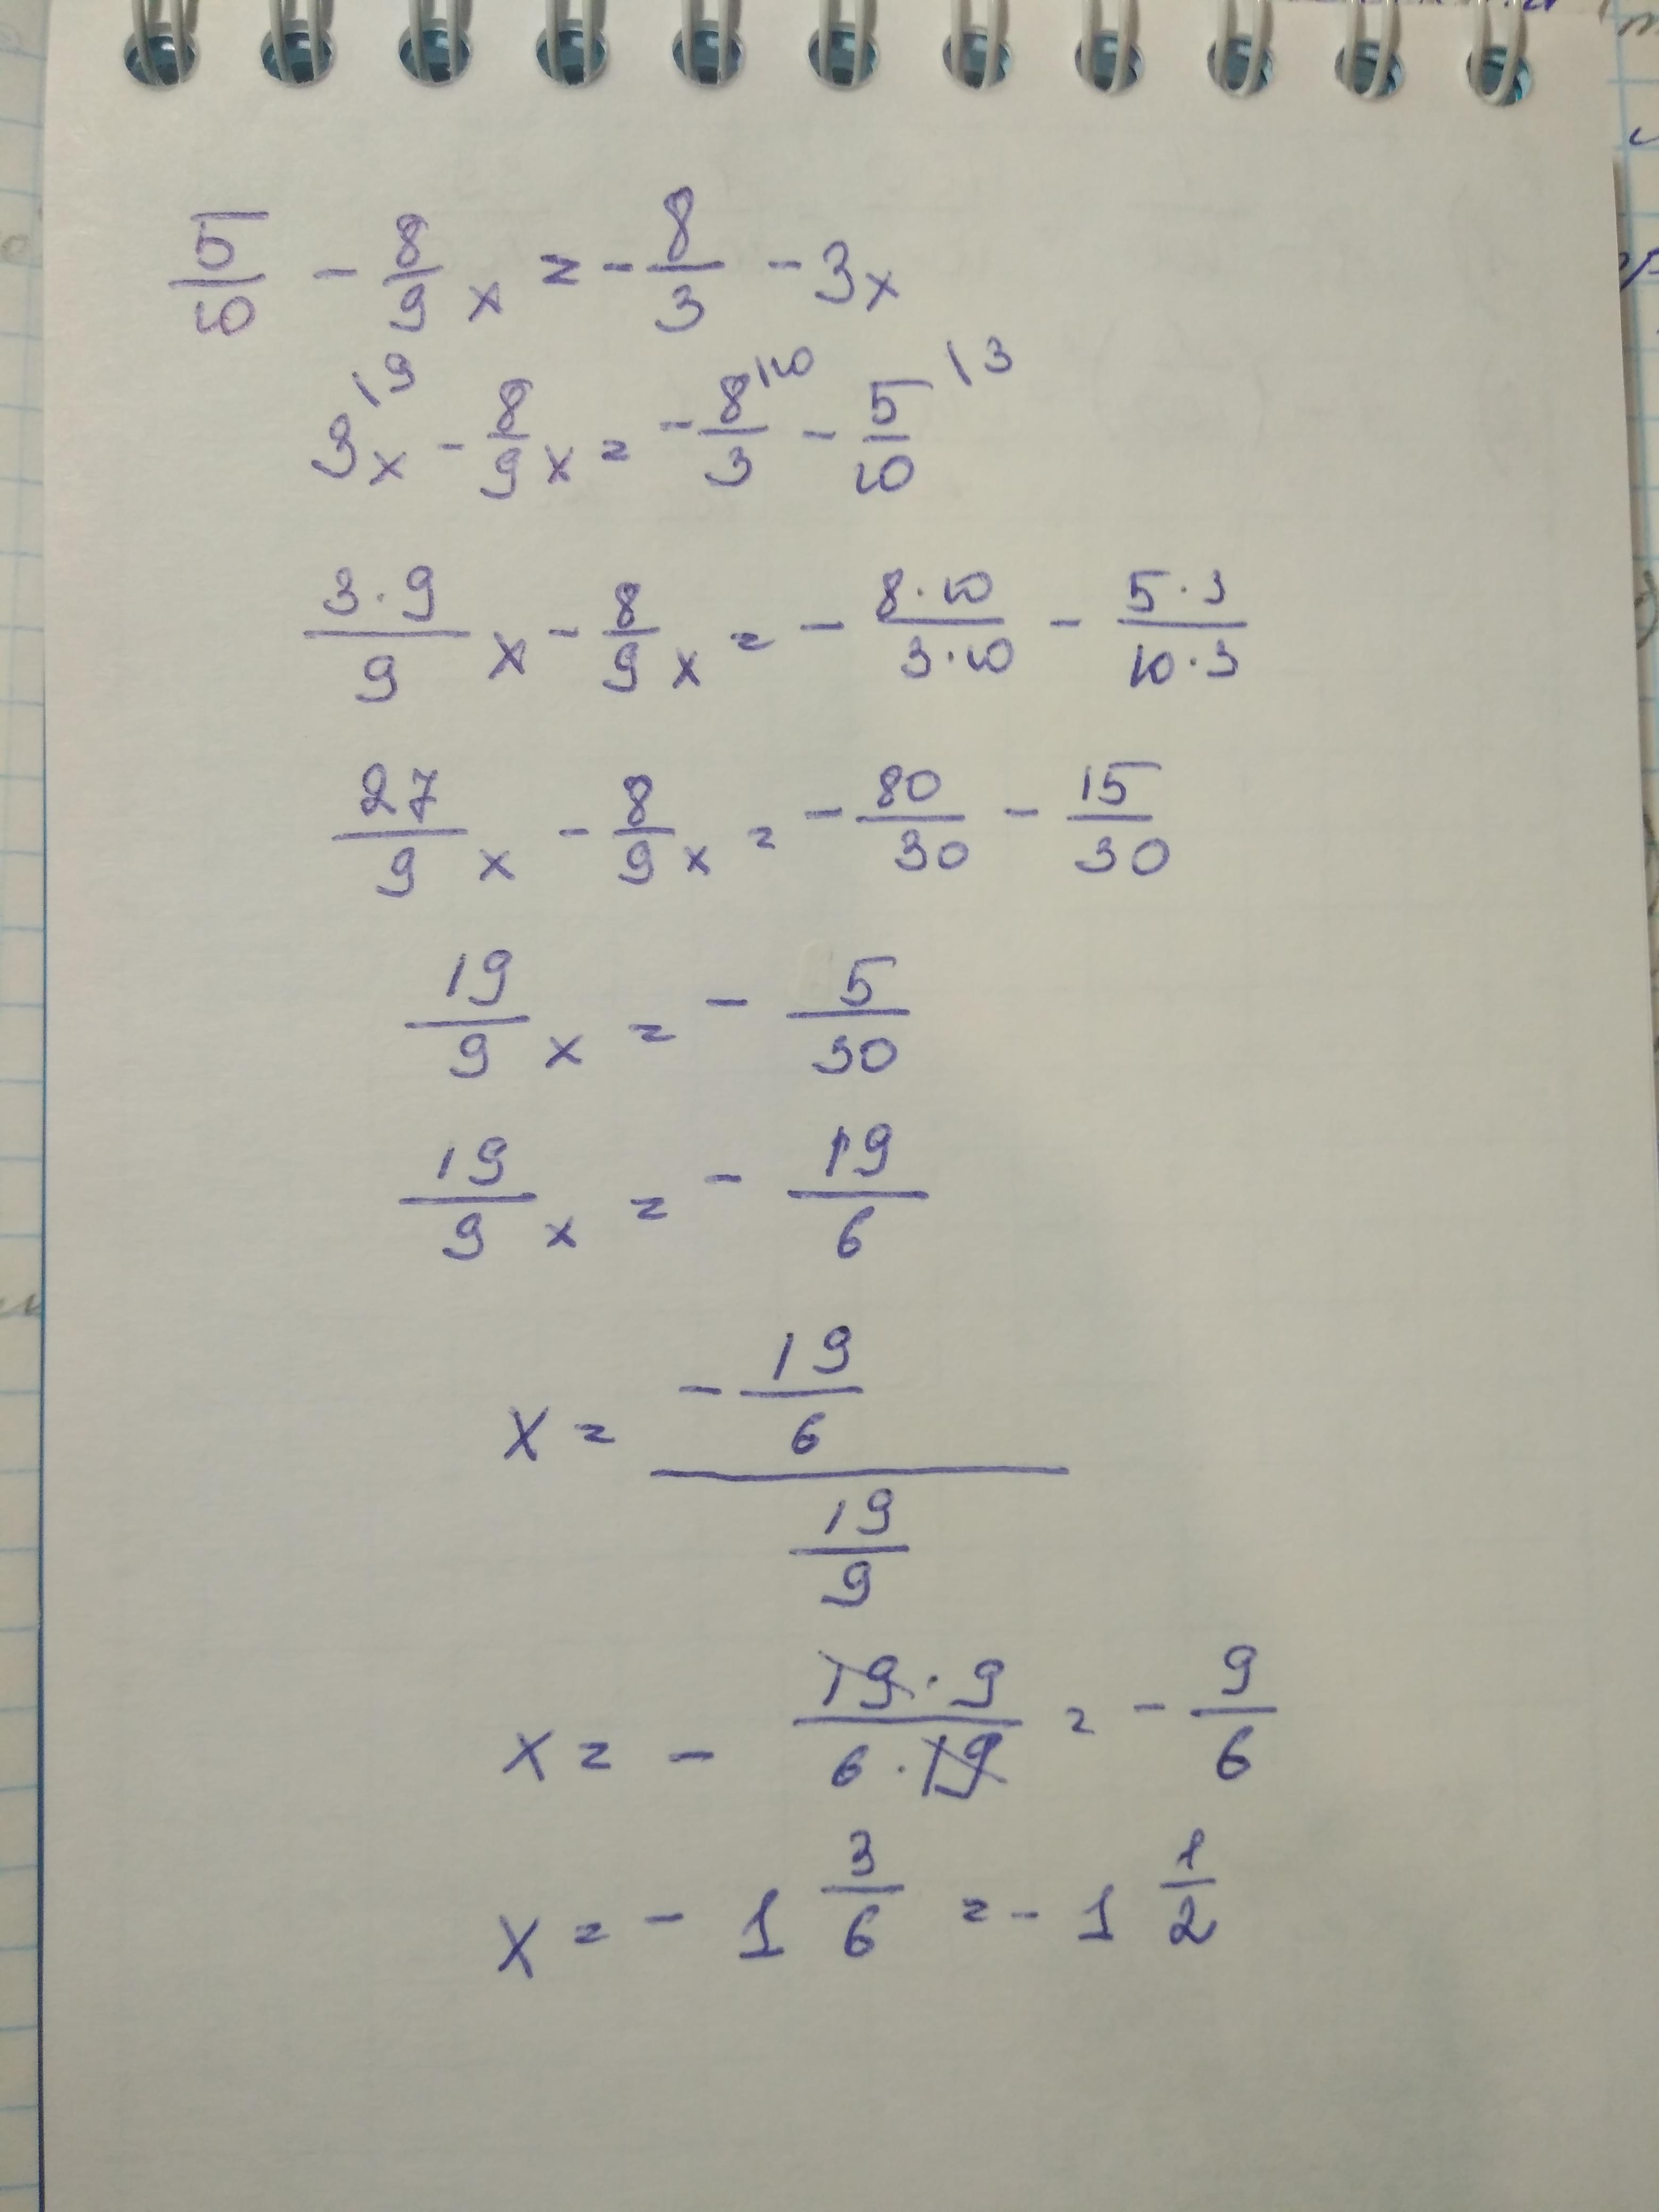 5/10 - 8/9 x = - 8/3 - 3x
3x\9 - 8/9 x = - 8/3\10 - 5/10\3
3·9/9 x - 8/9 x = - 8·10/3·10 - 5·3/10·3
27/9 x - 8/9 x = - 80/30 - 15/30
19/9 x = - 5/30
19/9 x = - 19/6
x = (- 19/6)/(19/9)
x = - 19·9/6·19 = - 9/6
x = - 1 3/6 = - 1 1/2